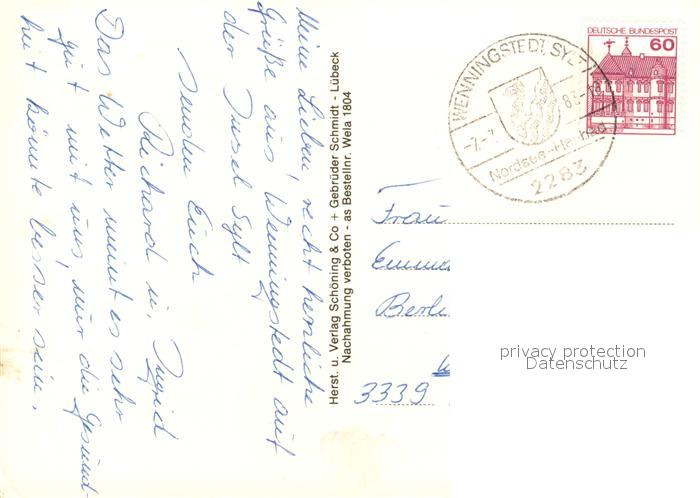 Meine Lieben, recht herzliche
Grüße aus Wenningstedt auf
der Insel Sylt
senden Euch
Richard u. Ingrid
Das Wetter meint es sehr
gut mit uns, nur die Gesund-
heit könnte besser sein.
Herst. u. Verlag Schöning & Co + Gebrüder Schmidt - Lübeck
Nachahmung verboten - as Bestellnr. Wela 1804
WENNINGSTEDT, SYLT
Nordsee-Heilbad
2283
DEUTSCHE BUNDESPOST
60
Frau
3339
privacy protection
Datenschutz